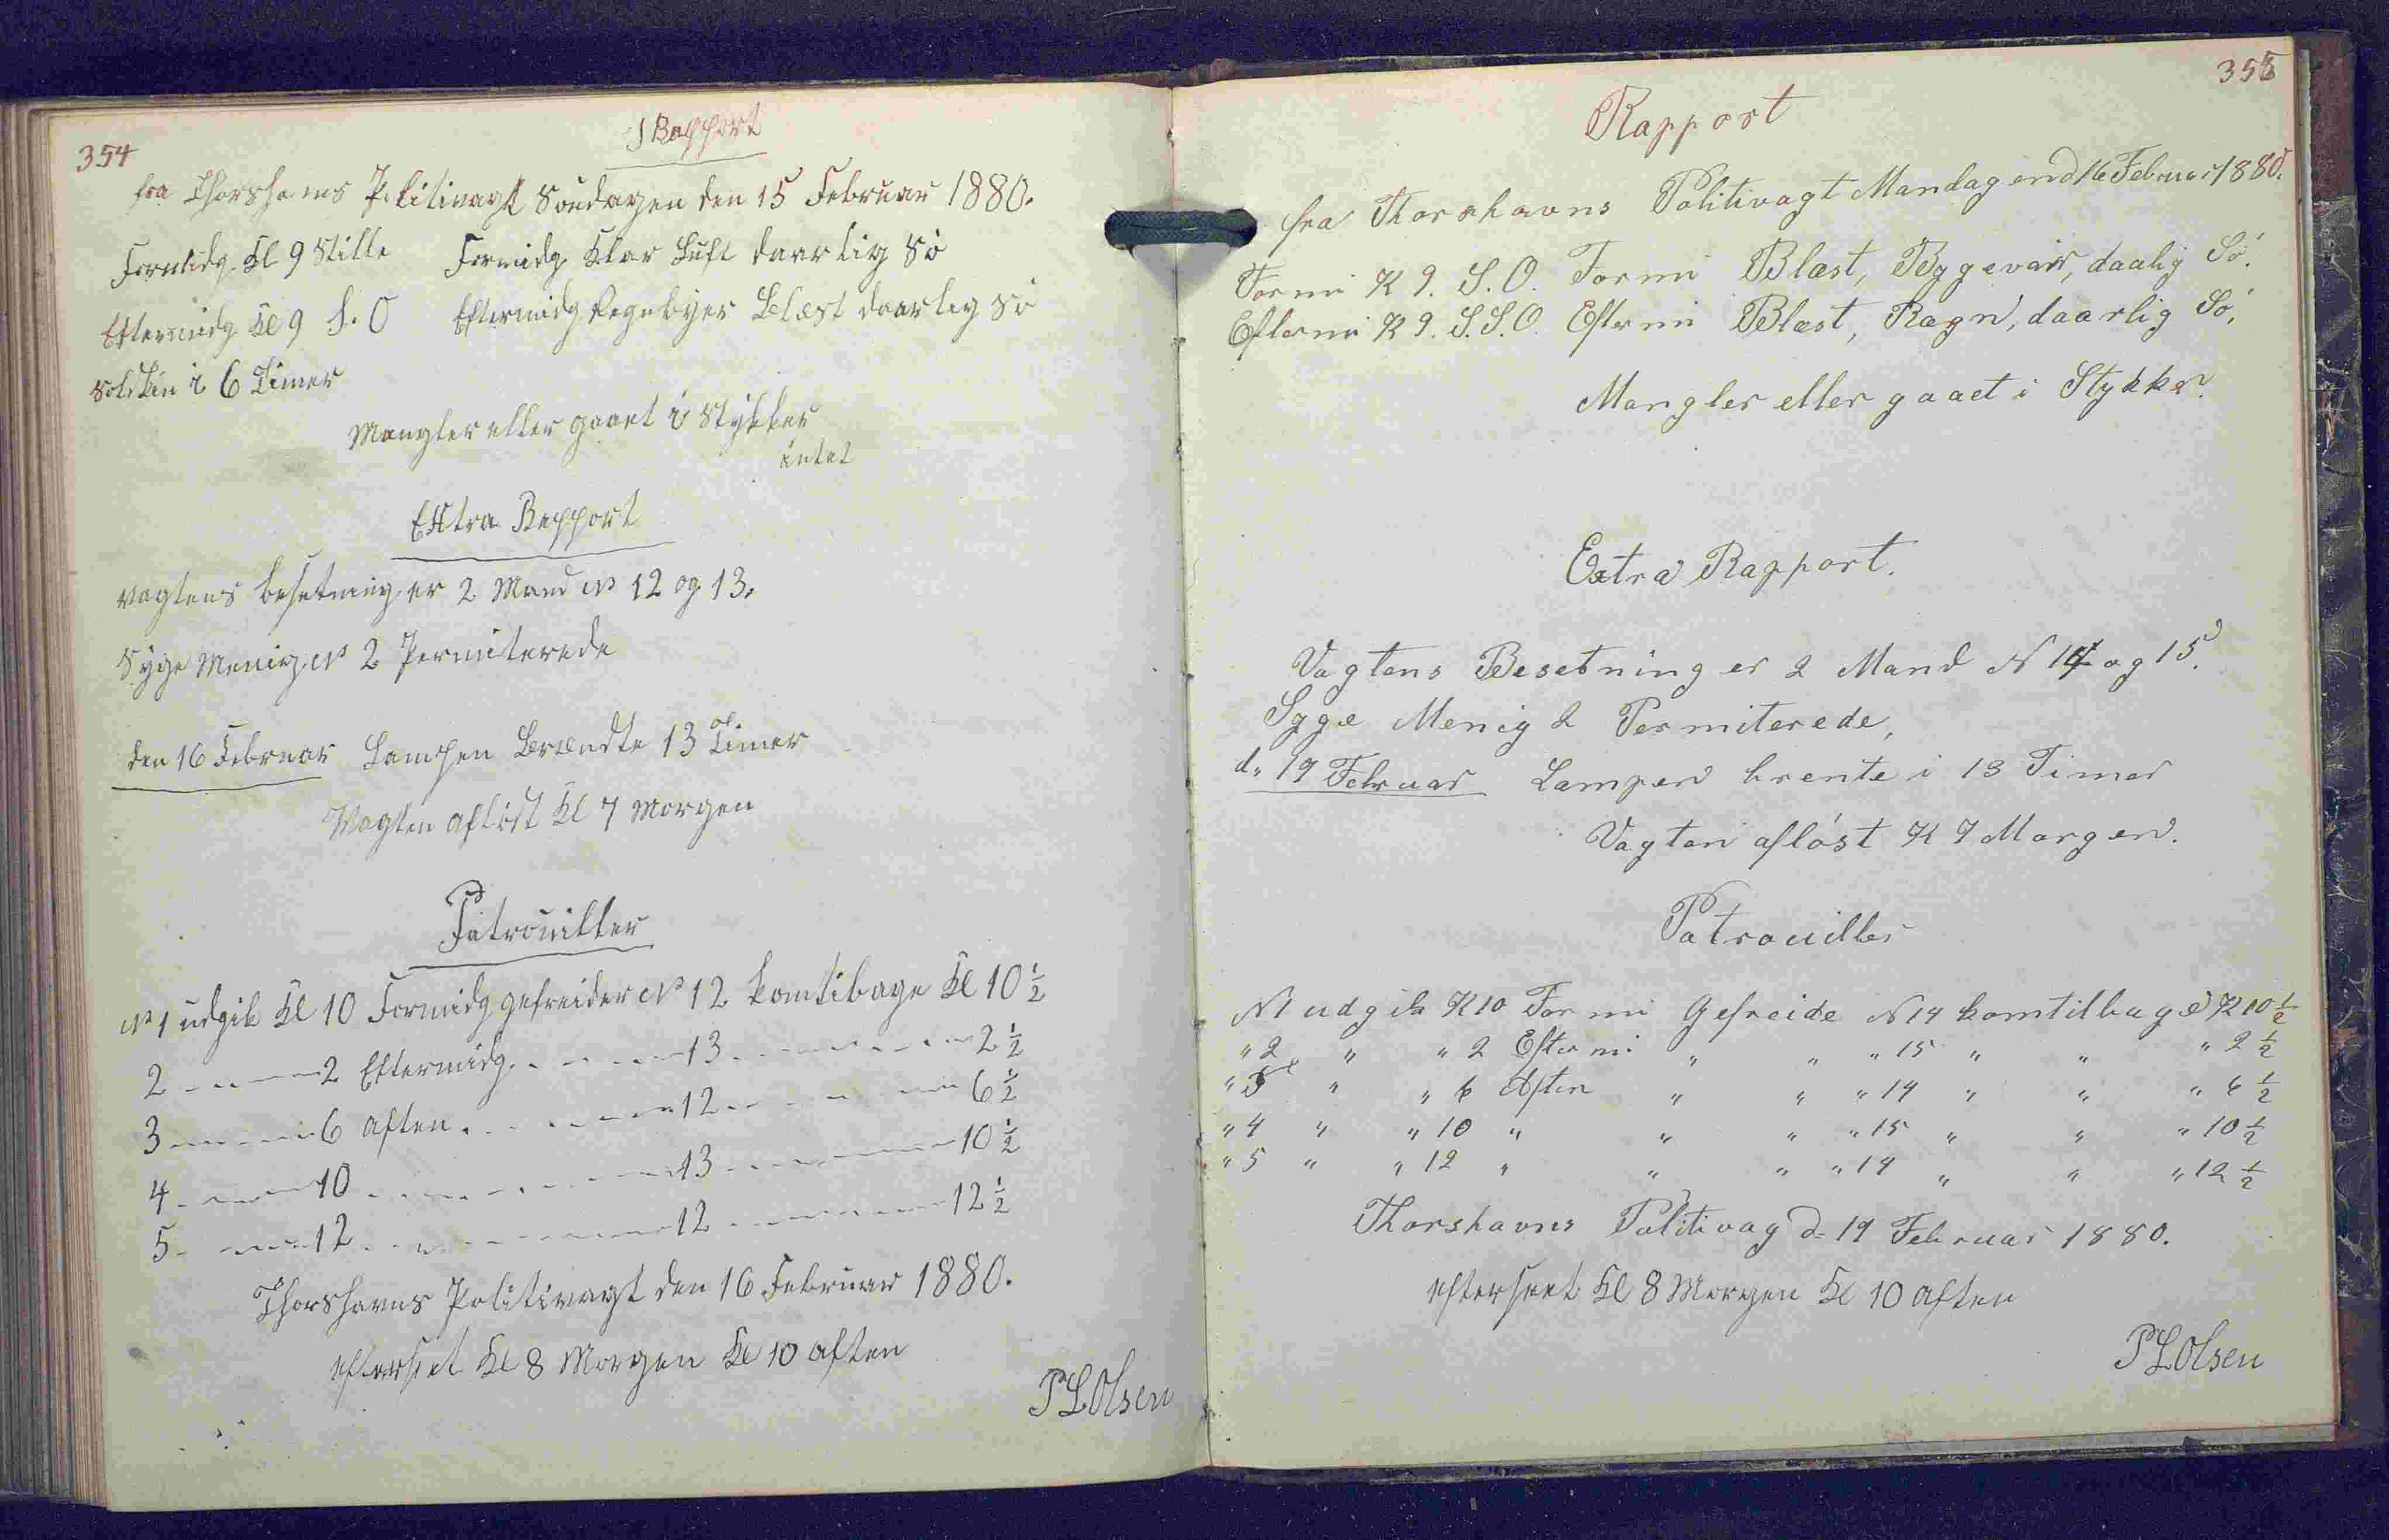 354
Rapport
fra Thorshavns Politivagt Søndagen den 15 Februar 1880.
Formidg. Kl 9 Stille Formidg Klar Luft daarlig Sö
Eftermidg Kl 9 S. O Eftermidg Regnbyer Blæst daarlig Sö
Solskin i 6 Timer
Mangler eller gaaet i Stykker
intet
Extra Rapport
Vagtens besetning er 2 Mand No 12 og 13.
Syge Menig No 2 Permiterede
den 16 Februar Lampen Brændte 13 Timer
Vagten aflöst Kl 7 Morgen
Patrouiller
No 1 udgik Kl 10 Formidg gefreider No 12 komtibage Kl 10 1/2
2 2 Eftermidg 13 2 1/2
3 6 aften 12 6 1/2
4 10 13 10 1/2
5 12 12 12 1/2
Thorshavns Politivagt den 16 Februar 1880.
efterseet Kl 8 Morgen Kl 10 aften
P L Olsen
355
Rapport
fra Thorshavns Politivagt Mandagend 16 Februar 1880.
Formi K 9. S. O. Formi Blæst, Bygevair, daalig Sö.
Eftermi K 9. S. S. O. Eftermi Blæst, Rægn, daarlig Sö,
Mangler eller gaaet i Stykker.
Extra Rapport.
Vagtens Besetning er 2 Mand N 14 og 15.
Syge Menig 2 Permiterede,
d. 17 Februar Lampen brente i 13 Timer
Vagten aflöst K 7 Morgen.
Patrouiller
N 1 udgik K 10 Formi Gefreide N 14 komtilbage K 10 1/2
" 2 " " 2 Eftermi " " " 15 " " " 2 1/2
" 3 " " 6 Aften " " " 14 " " " 6 1/2
" 4 " " 10 " " " " 15 " " " 10 1/2
" 5 " " 12 " " " " 14 " " " 12 1/2
Thorshavns Politivag d. 17 Februar 1880.
efterseet Kl 8 Morgen Kl 10 aften
P L Olsen